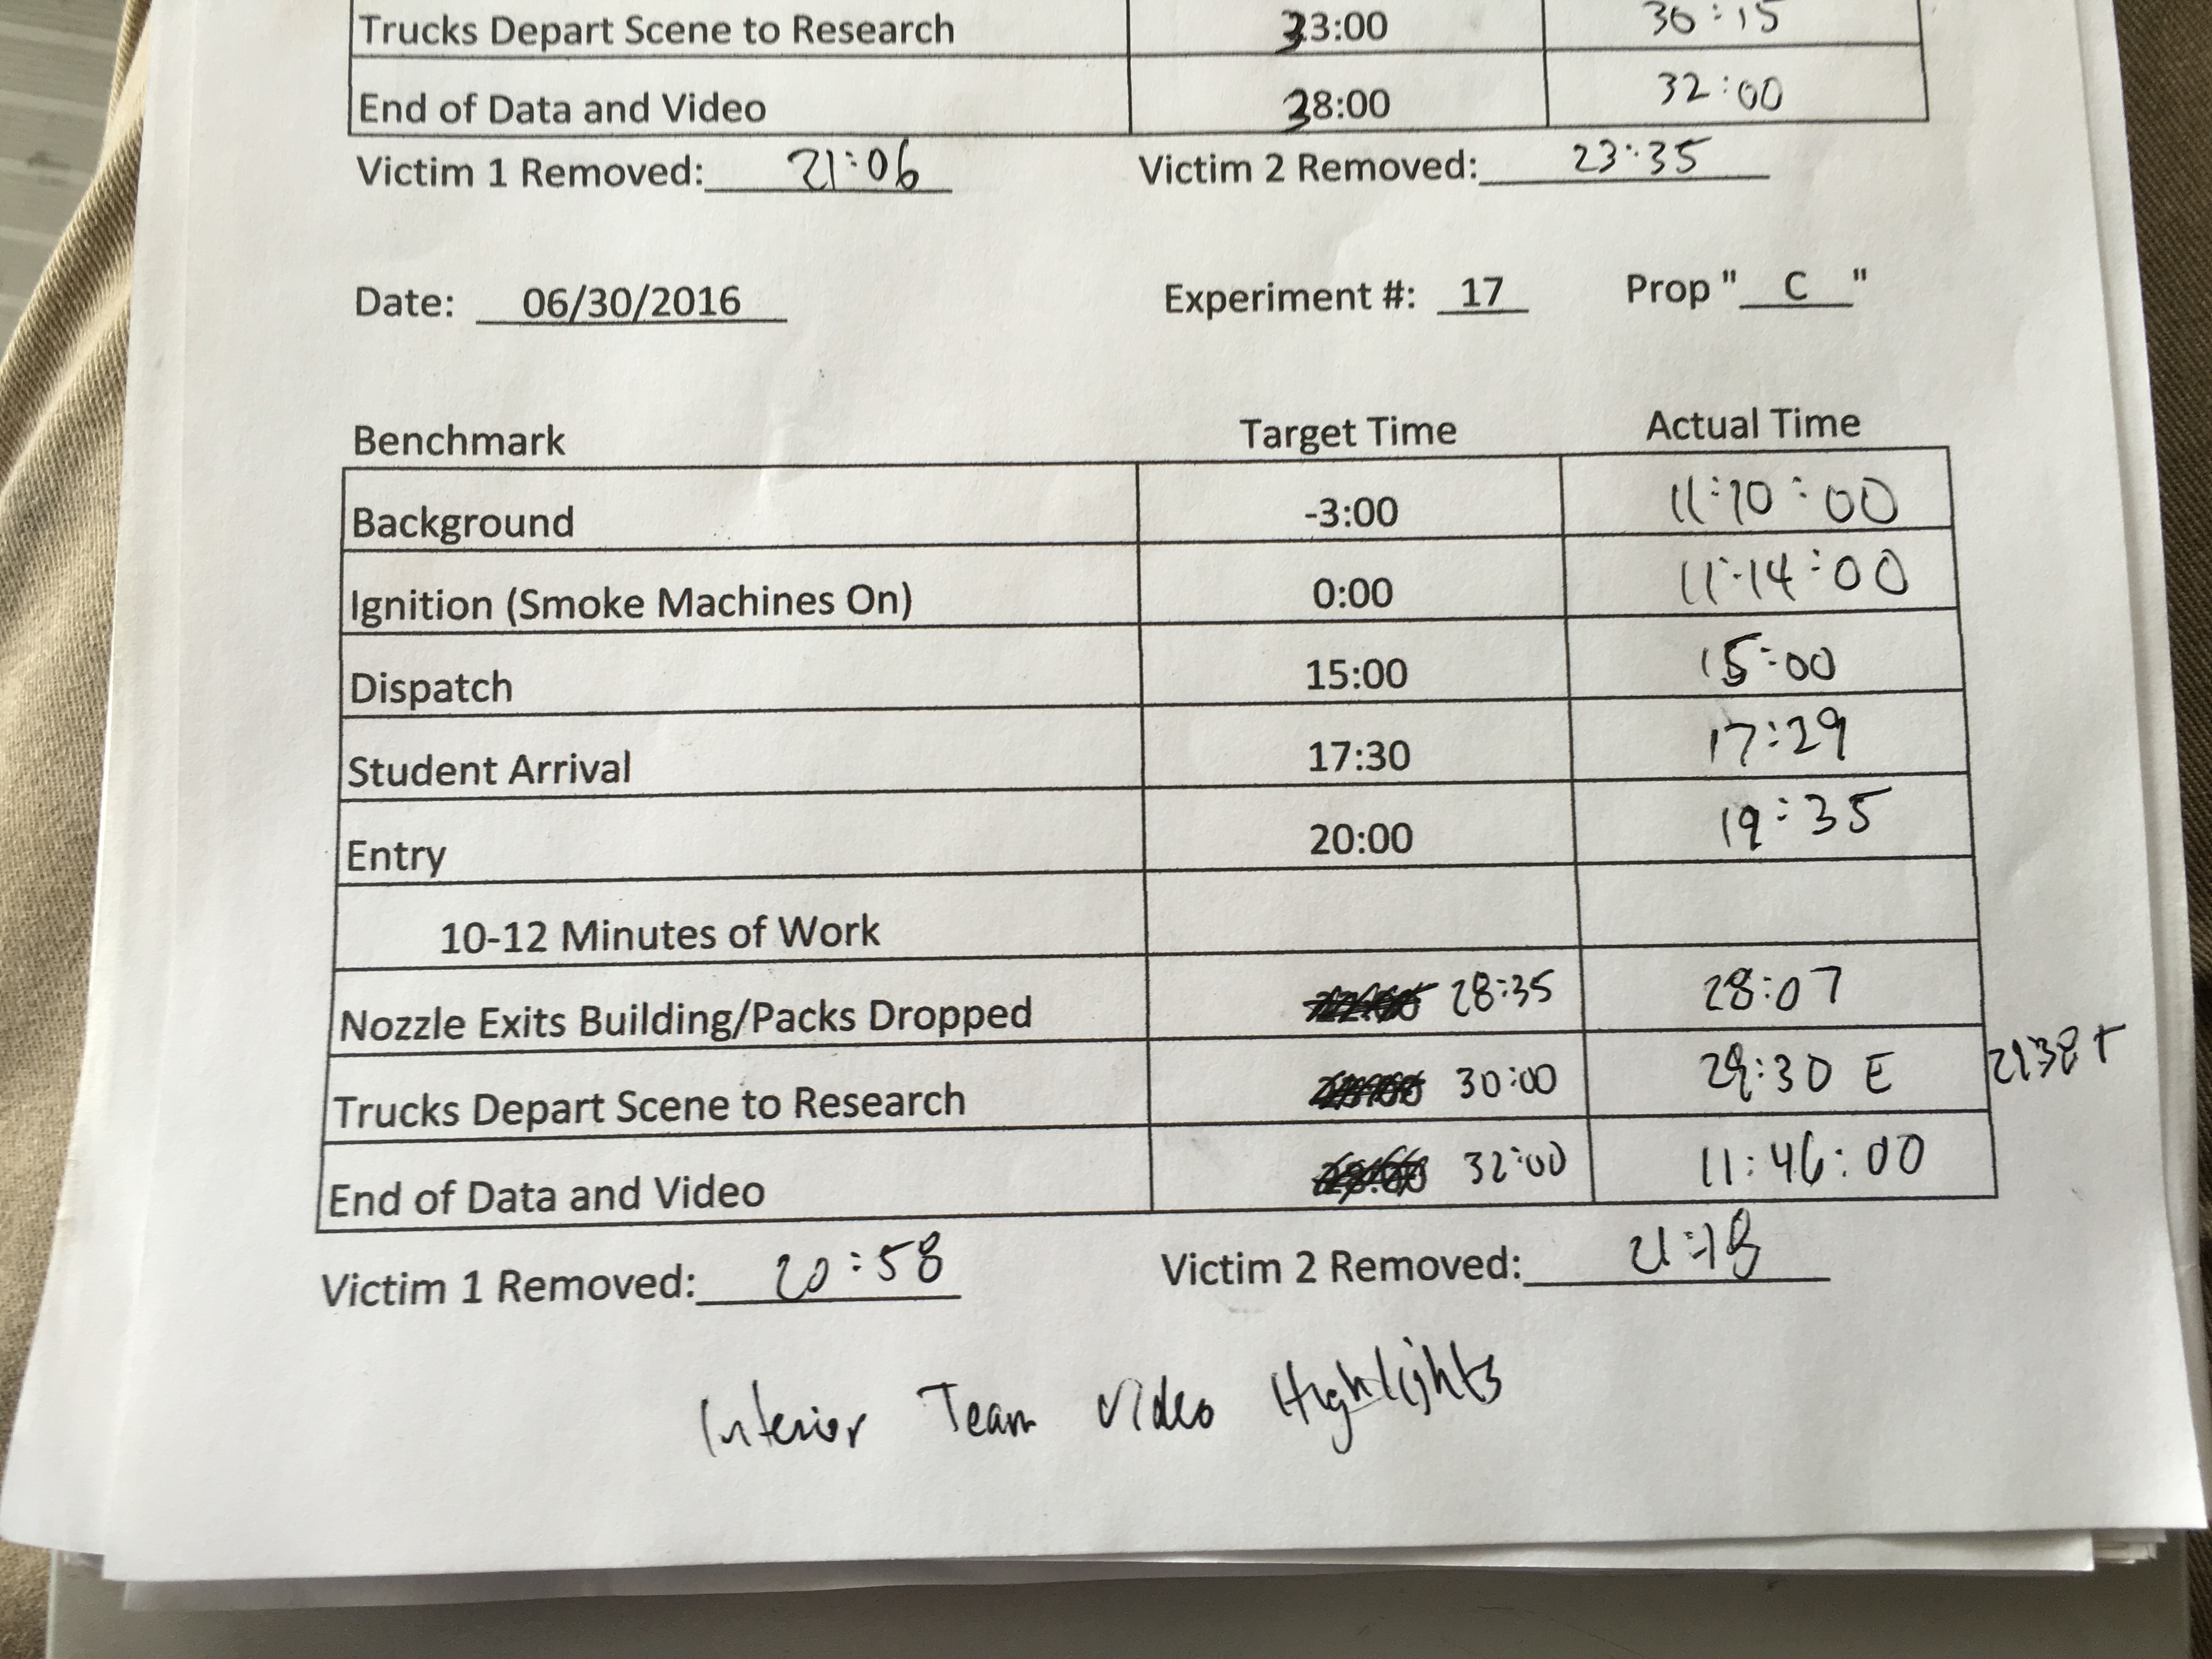 Trucks Depart Scene to Research 33:00 30:15
End of Data and Video 38:00 32:00
Victim 1 Removed: 21:06 Victim 2 Removed: 23:35
Date: 06/30/2016 Experiment #: 17 Prop " C "
Benchmark Target Time Actual Time
Background -3:00 11:10:00
Ignition (Smoke Machines On) 0:00 11:14:00
Dispatch 15:00 15:00
Student Arrival 17:30 17:29
Entry 20:00 19:35
10-12 Minutes of Work
Nozzle Exits Building/Packs Dropped 28:35 28:07
Trucks Depart Scene to Research 30:00 29:30 E
End of Data and Video 32:00 11:46:00
Victim 1 Removed: 20:58 Victim 2 Removed: 21:18
Interior Team Video Highlights